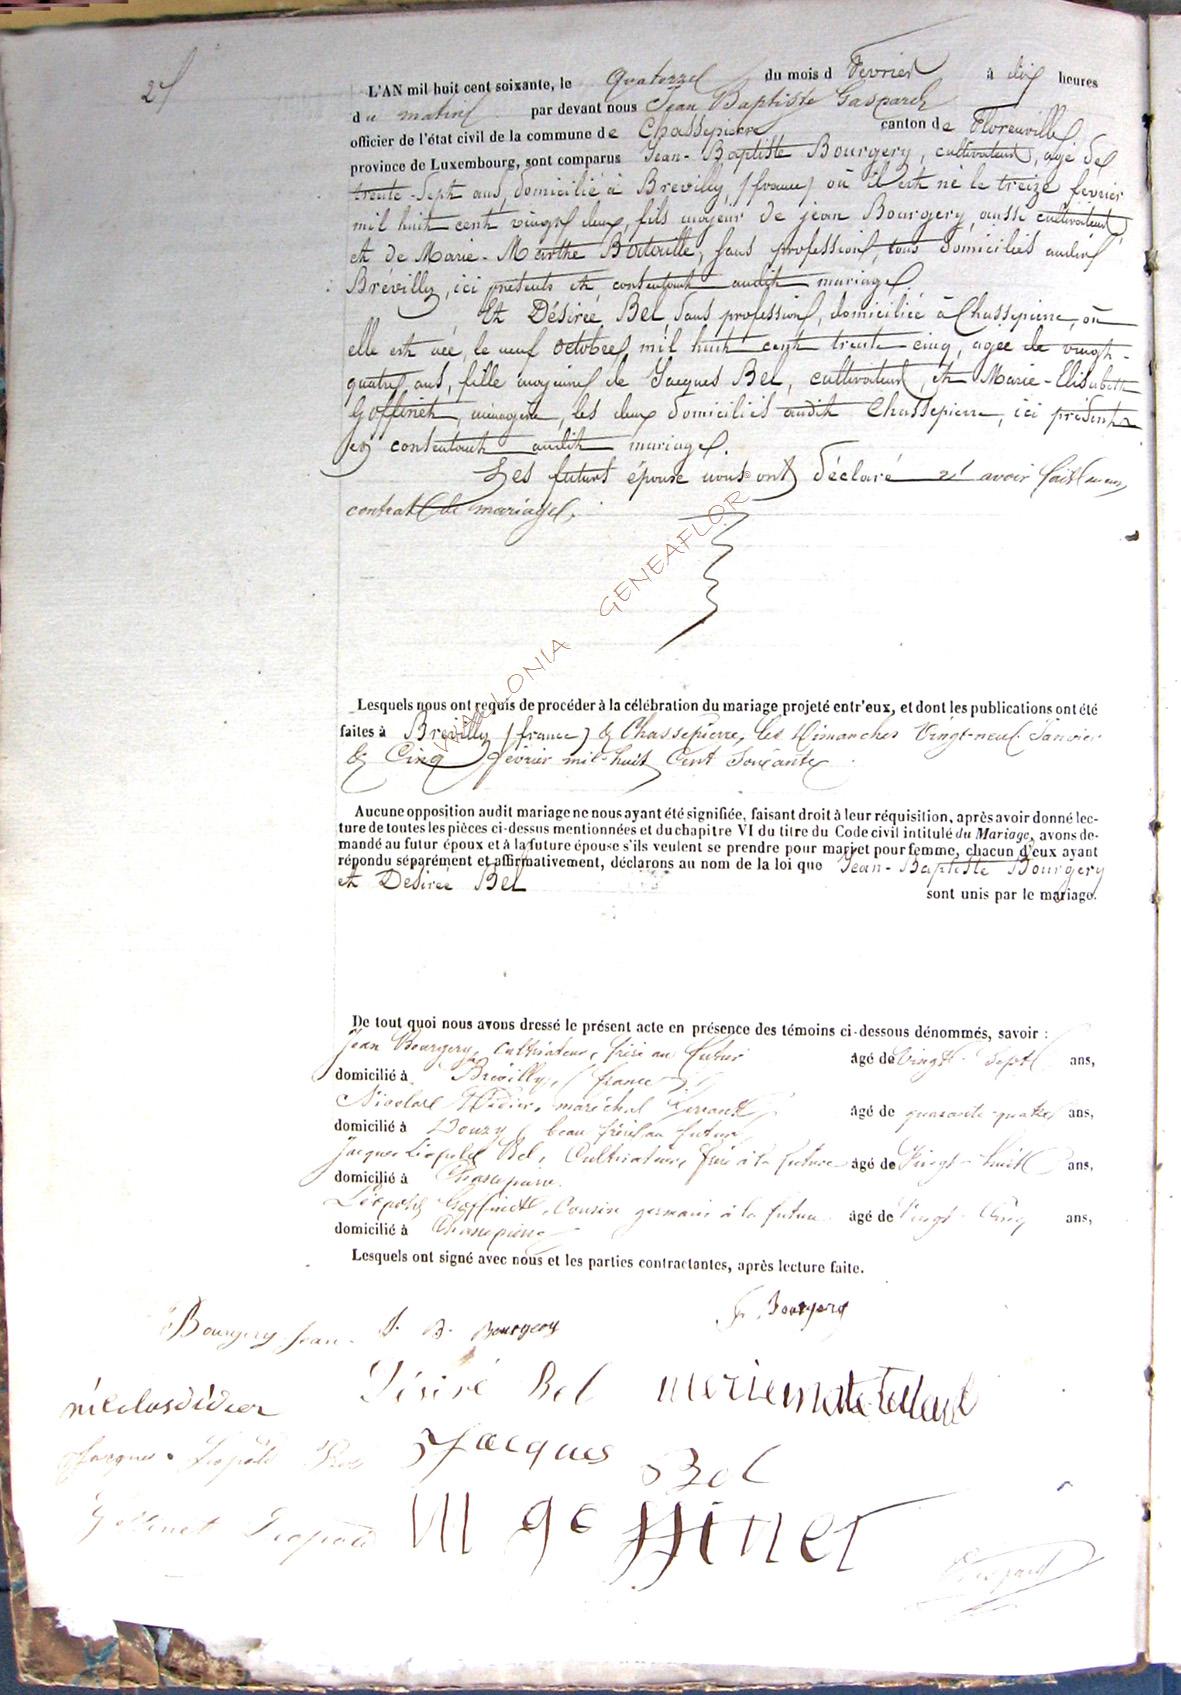 2
L'AN mil huit cent soixante, le Quatorze du mois d Février à dix heures
du matin par devant nous Jean Baptiste Gaspard
officier de l'état civil de la commune de Chassepierre canton de Florenville
province de Luxembourg, sont comparus Jean-Baptiste Bourgery, cultivateur, agé de
trente-sept ans, domicilié à Brévilly, (france) où il est né le treize février
mil huit cent vingt deux, fils majeur de jean Bourgery, aussi cultivateur
et de Marie-Marthe, sans profession, tous domiciliés audit
Brévilly, ici présents et consentant audit mariage.
Et Désirée Bel sans profession, domiciliée à Chassepierre, où
elle est née, le neuf octobre, mil huit cent trente cinq, agée de vingt-
quatre ans, fille majeure de Jacques Bel, cultivateur, et Marie-Elisabeth
Goffinet, ménagère, les deux domiciliés audit Chassepierre, ici présents
et consentant audit mariage.
Les futurs époux nous ont déclaré n'avoir fait aucun
contrat de mariage.
WALLONIA GENEAFLOR
Lesquels nous ont requis de procéder à la célébration du mariage projeté entr'eux, et dont les publications ont été
faites à Brévilly (france) & Chassepierre, les Dimanches Vingt-neuf Janvier
& Cinq février mil huit Cent Soixante.
Aucune opposition audit mariage ne nous ayant été signifiée, faisant droit à leur réquisition, après avoir donné lec-
ture de toutes les pièces ci-dessus mentionnées et du chapitre VI du titre du Code civil intitulé du Mariage, avons de-
mandé au futur époux et à la future épouse s'ils veulent se prendre pour mari et pour femme, chacun d'eux ayant
répondu séparément et affirmativement, déclarons au nom de la loi que Jean-Baptiste Bourgery
et Desirée Bel
sont unis par le mariage.
De tout quoi nous avons dressé le présent acte en présence des témoins ci-dessous dénommés, savoir :
Jean Bourgery, cultivateur, frère au futur âgé de Vingt-Sept ans,
domicilié à Brévilly, (france)
Nicolas Didier, maréchal ferrant âgé de quarante-quatre ans,
domicilié à Douzy, beau frère au futur,
Jacques Léopold Bel, Cultivateur, frère à la future âgé de Vingt-huit ans,
domicilié à Chassepierre.
Léopold Goffinet, Cousin germain à la future âgé de Vingt-Cinq ans,
domicilié à Chassepierre
Lesquels ont signé avec nous et les parties contractantes, après lecture faite.
Bourgery jean J. B. Bourgery Bourgery
nicolas didier Désiré Bel
Jacques Léopold Bel Jacques Bel
Goffinet Léopold goffinet
Gaspard